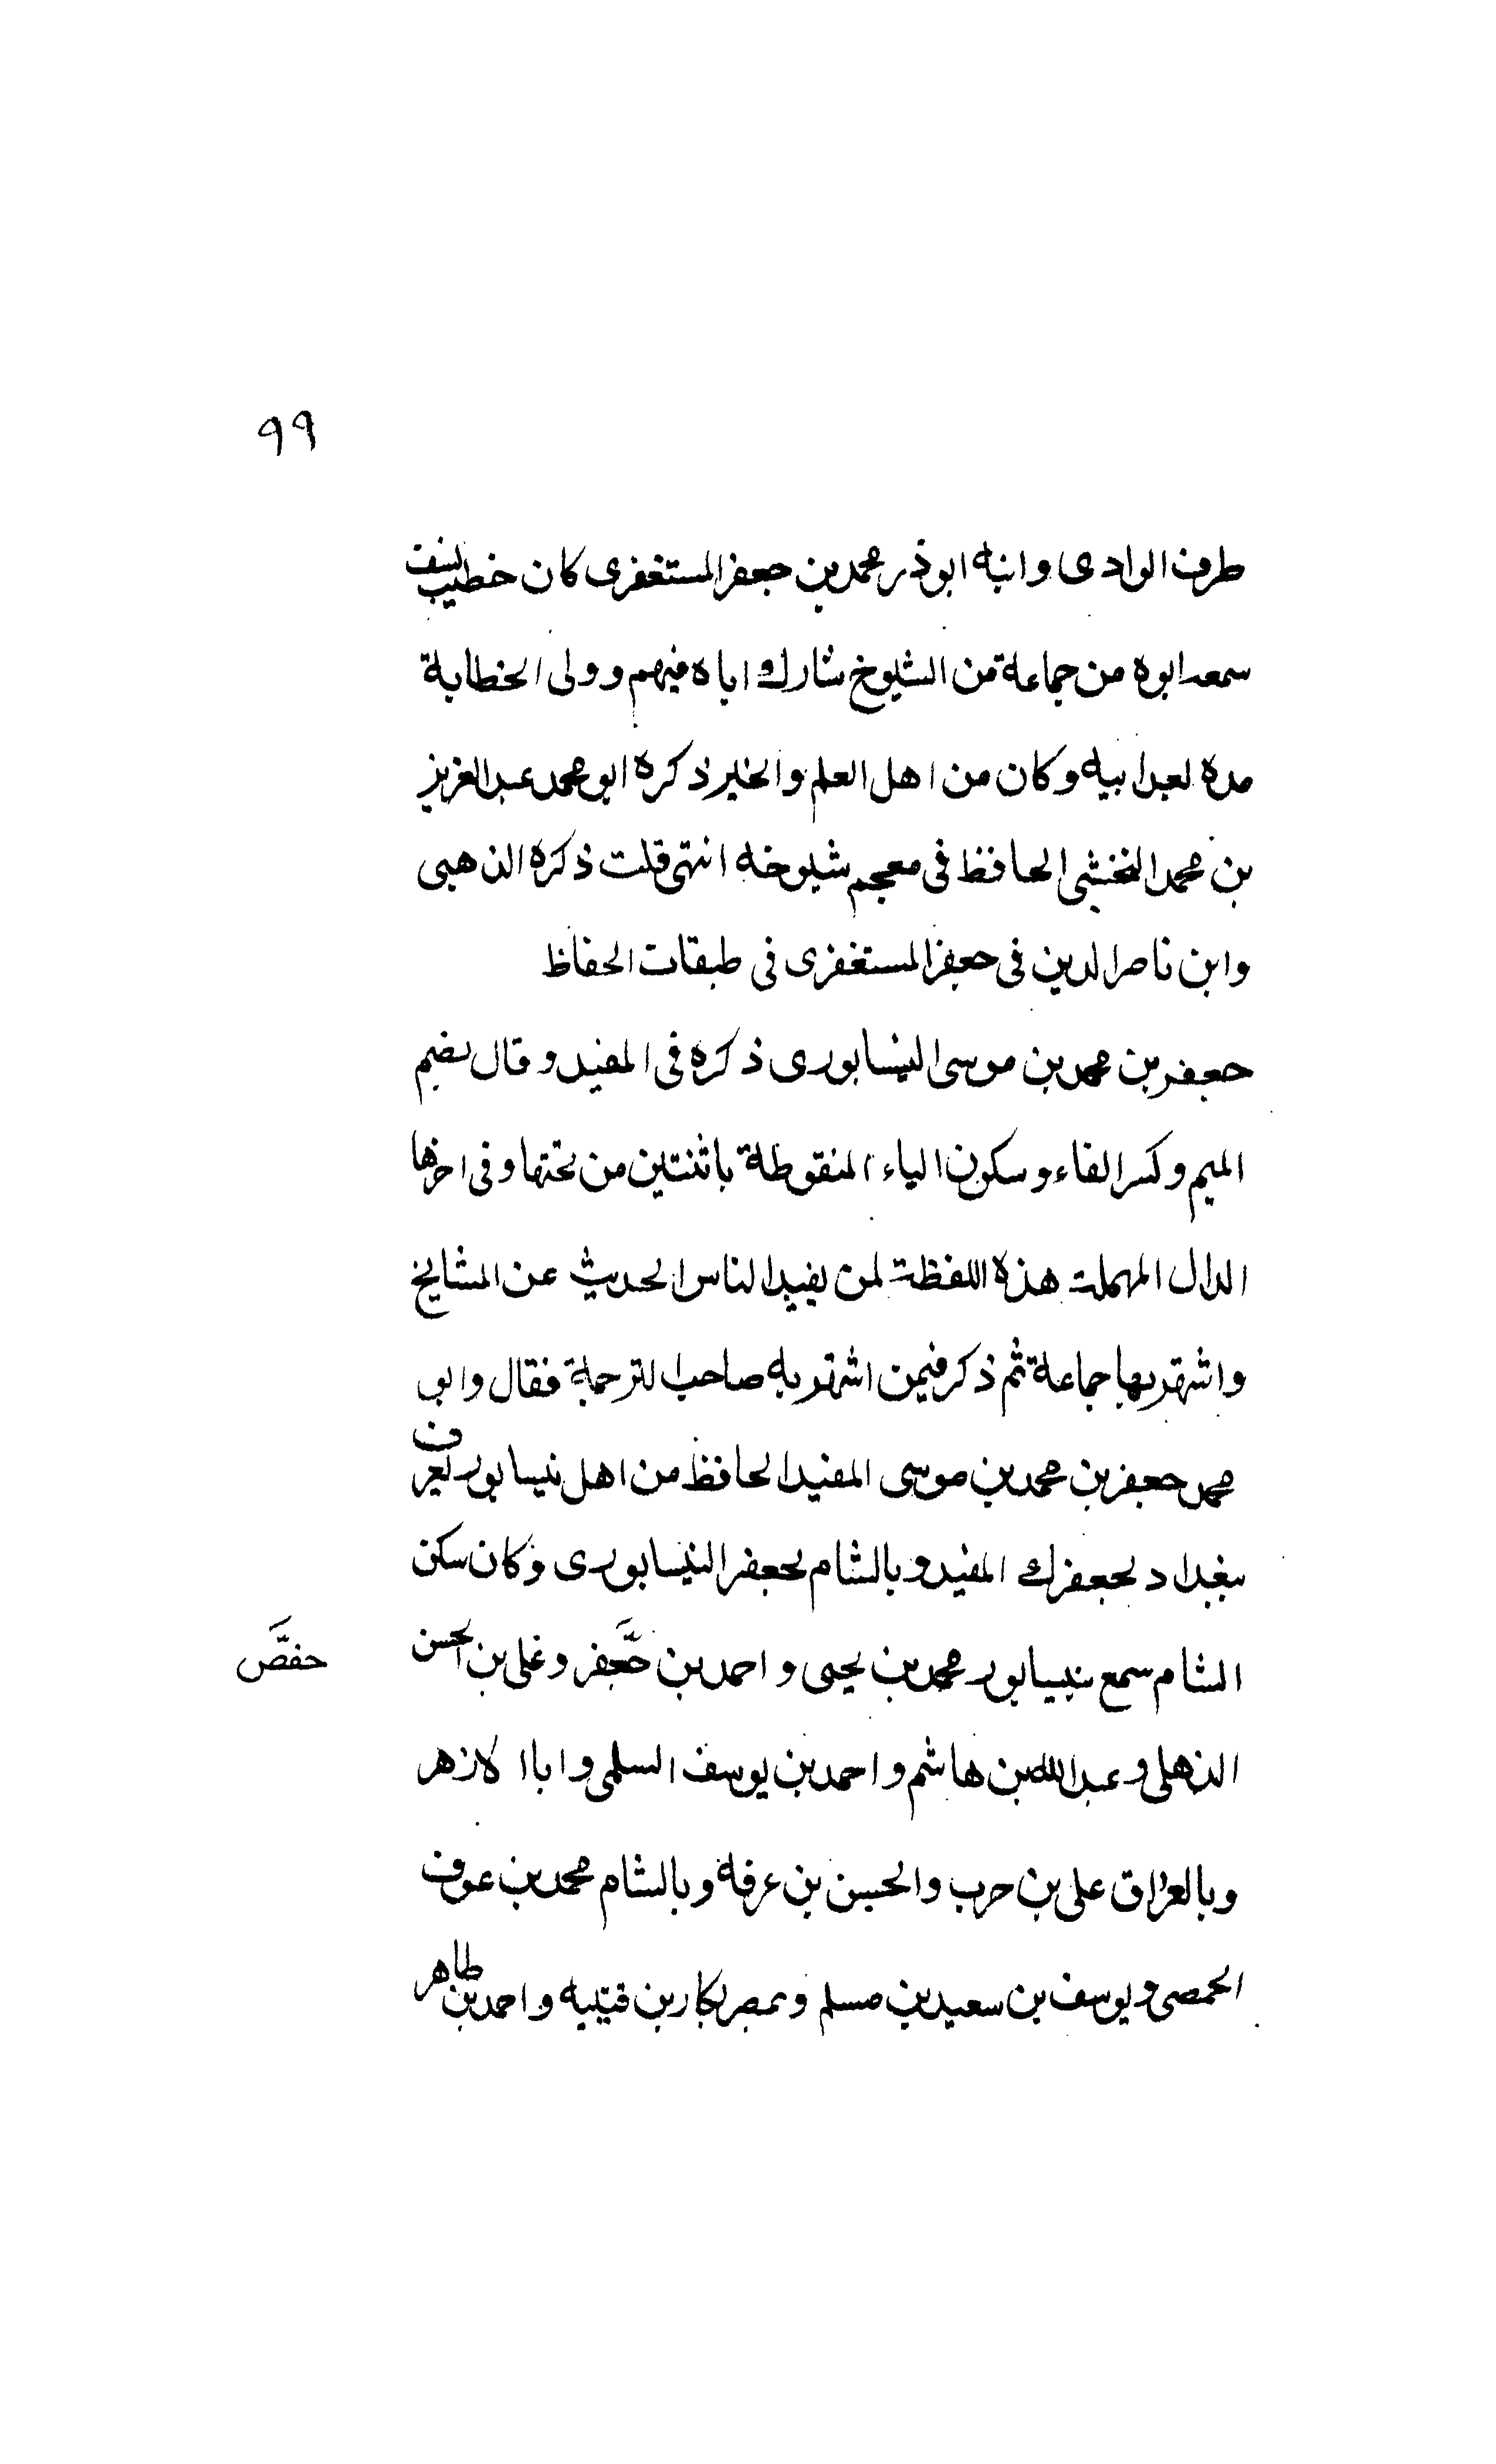 ٩٩
طرف الوادى وابنه ابوذر محمد بن جعفر المستغفرى كان خطيب نسف
سمعه ابوه من جماعة من الشيوخ شارك اباه فيهم وولى الخطابة
مدة بعد ابيه وكان من اهل العلم والخير ذكره ابو محمد عبد العزيز
بن محمد النخشبى الحافظ فى معجم شيوخه انتهى قلت ذكره الذهبى
وابن ناصر الدين فى جعفر المستغفرى فى طبقات الحفاظ
جعفر بن محمد بن موسى النيسابورى ذكره فى المفيد وقال بضم
الميم وكسر الفاء وسكون الياء المنقوطة باثنتين من تحتها وفى اخرها
الدال المهملة هذه اللفظة لمن يفيد الناس الحديث عن المشايخ
واشتهر بها جماعة ثم ذكر فيمن اشتهر به صاحب الترجمة فقال وابى
محمد جعفر بن محمد بن موسى المفيد الحافظ من اهل نيسابور يعرف
ببغداد بجعفرك المفيد وبالشام بجعفر النيسابورى وكان سكن
الشام سمع بنيسابور محمد بن يحيى واحمد بن جعفر وعلى بن الحسن
حفص
الذهلى وعبد الله بن هاشم واحمد بن يوسف السلمى وابا الازهر
وبالعراق على بن حرب والحسن بن عرفة وبالشام محمد بن عوف
الحمصى ويوسف بن سعيد بن مسلم وبمصر بكار بن قتيبة واحمد بن طاهر